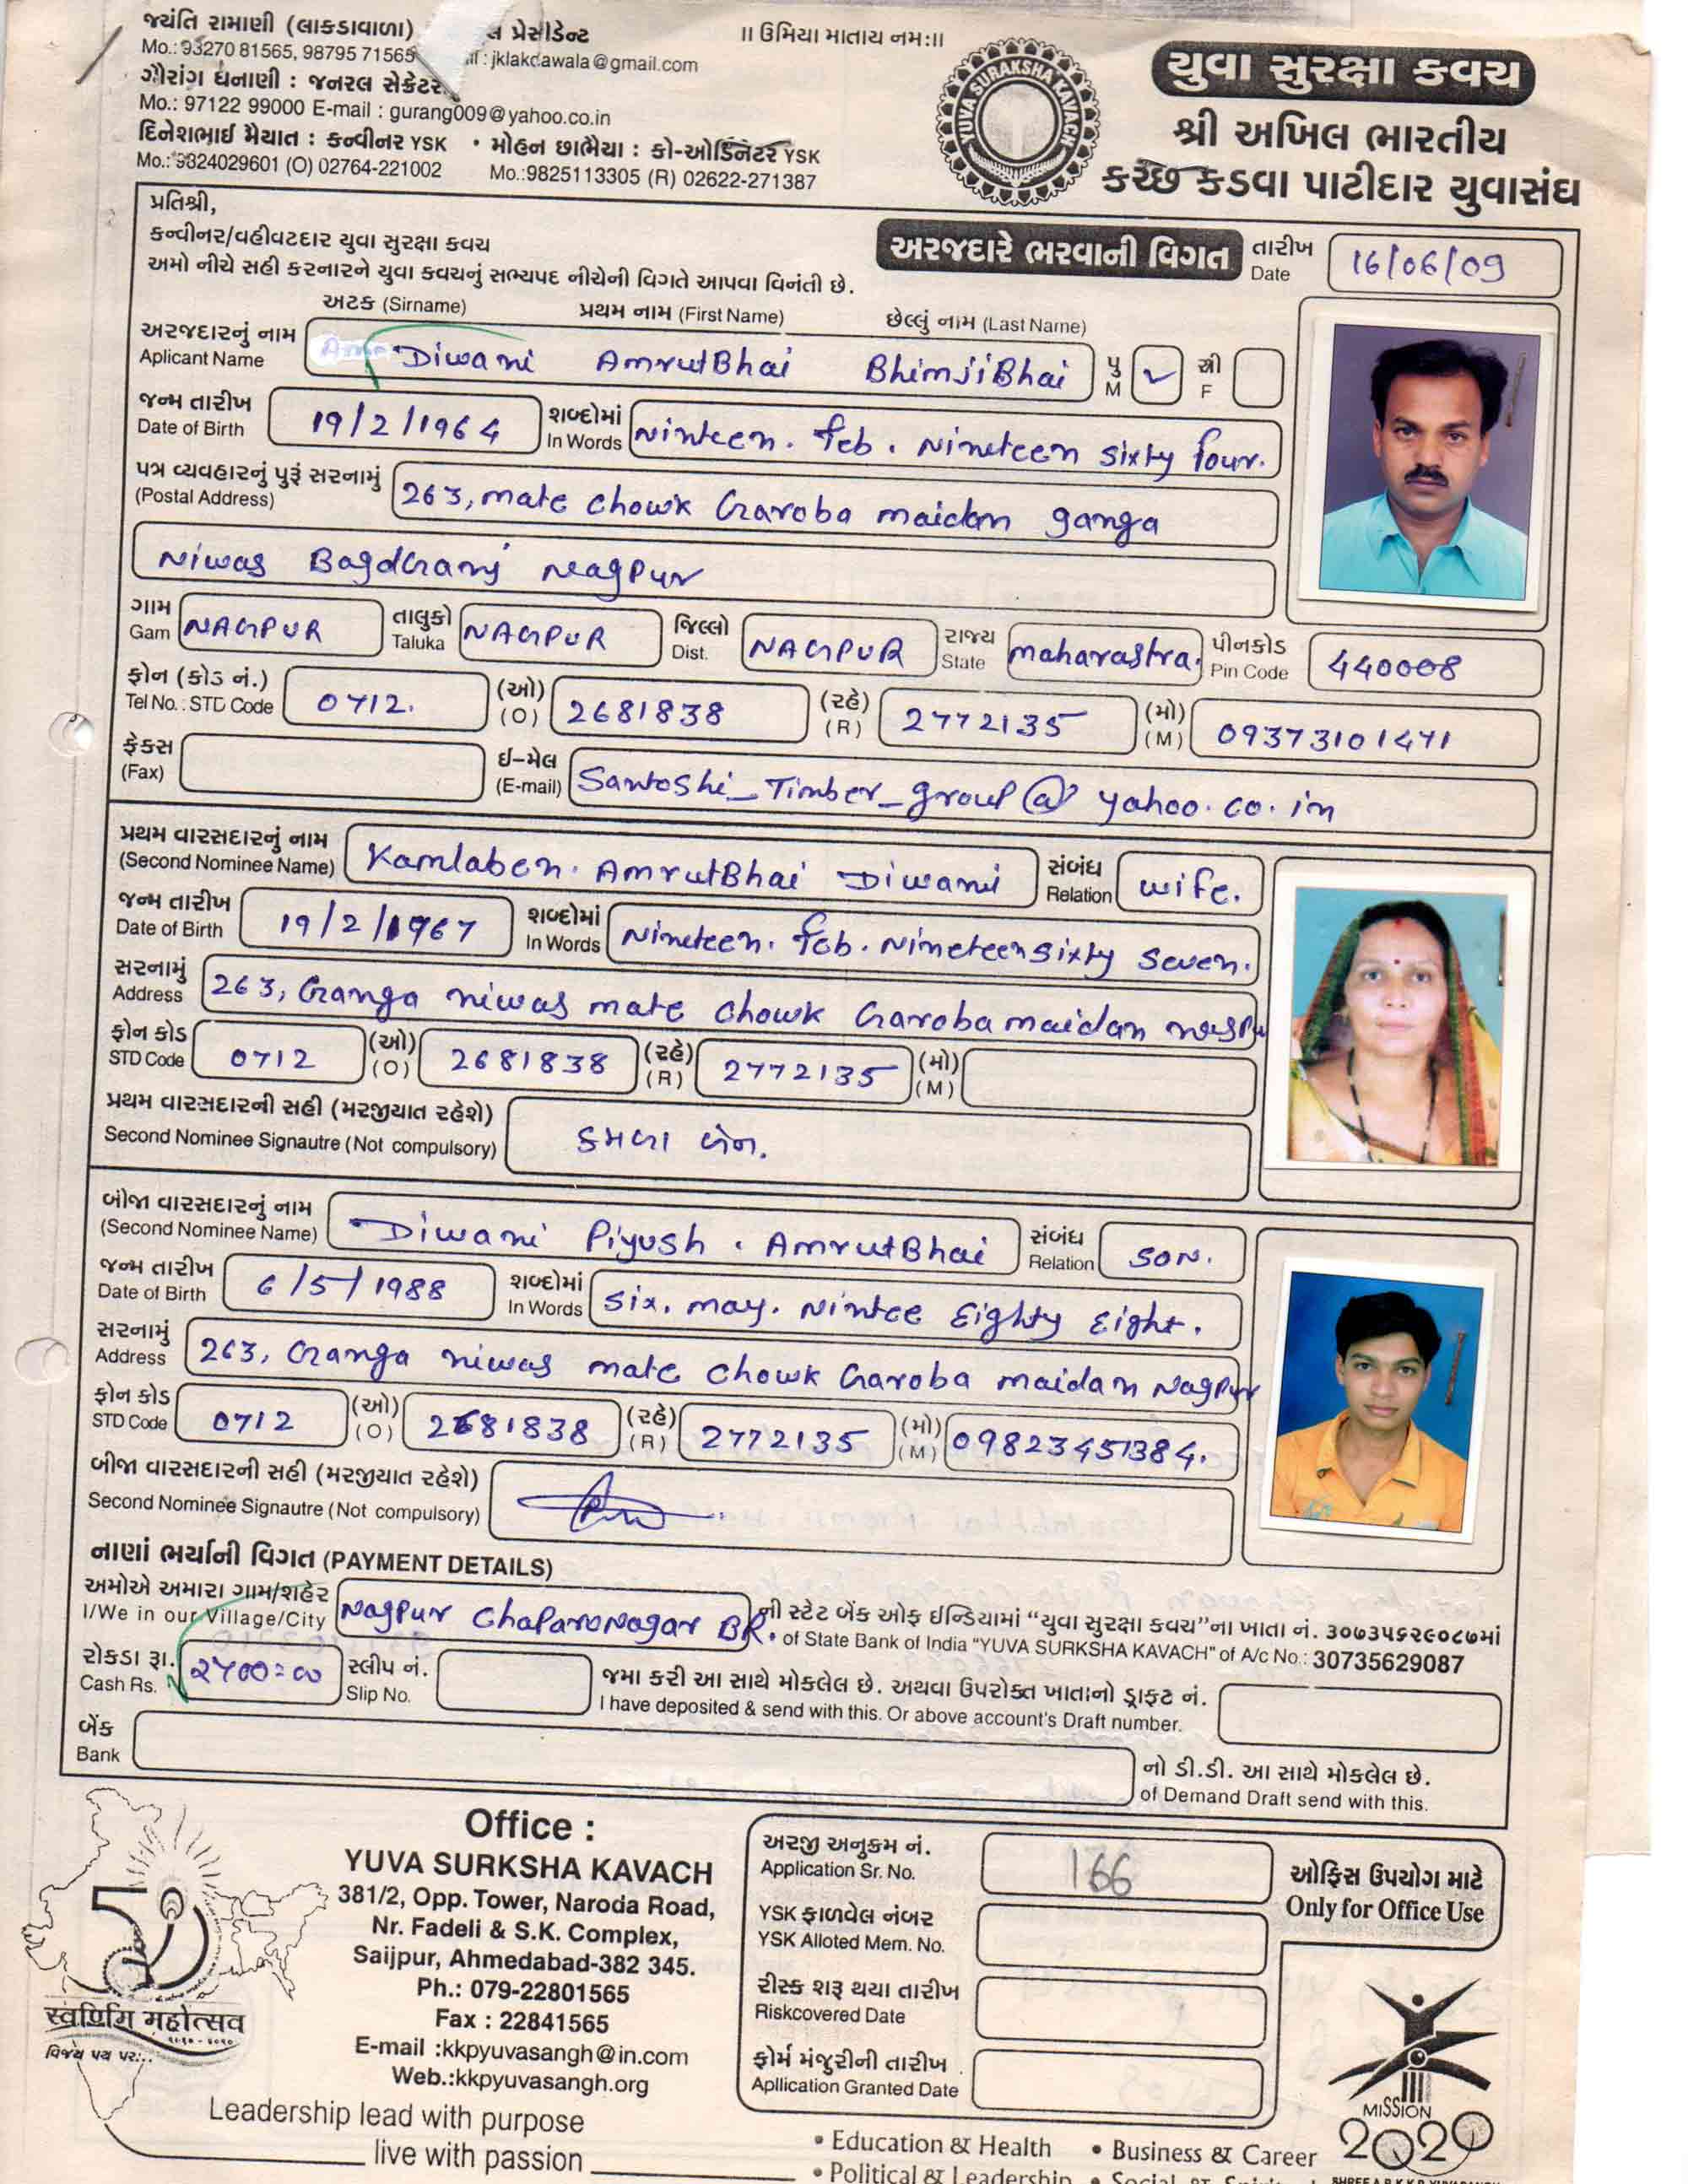 જયંતિ રામાણી (લાકડાવાળા) પ્રેસીડેન્ટ
Mo.: 93270 81565, 98795 71565 : jklakdawala@gmail.com
ગૌરાંગ ધનાણી : જનરલ સેક્રેટર
Mo.: 97122 99000 E-mail : gurang009@yahoo.co.in
દિનેશભાઈ મૈયાત : કન્વીનર YSK • મોહન છાભૈયા : કો-ઓર્ડિનેટર YSK
Mo.: 9824029601 (O) 02764-221002 Mo.:9825113305 (R) 02622-271387
॥ ઉમિયા માતાય નમ:॥
YUVA SURAKSHA KAVACH
યુવા સુરક્ષા કવચ
શ્રી અખિલ ભારતીય
કચ્છ કડવા પાટીદાર યુવાસંઘ
પ્રતિશ્રી,
કન્વીનર/વહીવટદાર યુવા સુરક્ષા કવચ
અમો નીચે સહી કરનારને યુવા કવચનું સભ્યપદ નીચેની વિગતે આપવા વિનંતી છે.
અરજદારે ભરવાની વિગત તારીખ Date 16/06/09
અટક (Sirname) પ્રથમ નામ (First Name) છેલ્લું નામ (Last Name)
અરજદારનું નામ Aplicant Name Diwani AmrutBhai BhimjiBhai પુ M ✓ સ્રી F
જન્મ તારીખ Date of Birth 19/2/1964 શબ્દોમાં In Words Ninteen. feb. Nineteen sixty four.
પત્ર વ્યવહારનું પુરૂં સરનામું (Postal Address) 263, mate chowk Garoba maidan ganga
Niwas BagdGanj Nagpur
ગામ Gam NAGPUR તાલુકો Taluka NAGPUR જિલ્લો Dist. NAGPUR રાજ્ય State maharastra. પીનકોડ Pin Code 440008
ફોન (કોડ નં.) Tel No. : STD Code 0712. (ઓ) (O) 2681838 (રહે) (R) 2772135 (મો) (M) 09373101471
ફેક્સ (Fax) ઈ-મેલ (E-mail) Santoshi_Timber_group@yahoo.co.in
પ્રથમ વારસદારનું નામ (Second Nominee Name) Kamlaben. AmrutBhai Diwani સંબંધ Relation wife.
જન્મ તારીખ Date of Birth 19/2/1967 શબ્દોમાં In Words Nineteen. feb. Nineteen sixty seven.
સરનામું Address 263, Ganga niwas mate chowk Garoba maidan nagpu
ફોન કોડ STD Code 0712 (ઓ) (O) 2681838 (રહે) (R) 2772135 (મો) (M)
પ્રથમ વારસદારની સહી (મરજીયાત રહેશે)
Second Nominee Signautre (Not compulsory) કમળા બેન.
બીજા વારસદારનું નામ (Second Nominee Name) Diwani Piyush. AmrutBhai સંબંધ Relation SON.
જન્મ તારીખ Date of Birth 6/5/1988 શબ્દોમાં In Words Six. may. Nintee Eighty Eight.
સરનામું Address 263, Ganga niwas mate chowk Garoba maidan Nagpur
ફોન કોડ STD Code 0712 (ઓ) (O) 2681838 (રહે) (R) 2772135 (મો) (M) 09823451384.
બીજા વારસદારની સહી (મરજીયાત રહેશે)
Second Nominee Signautre (Not compulsory)
નાણાં ભર્યાની વિગત (PAYMENT DETAILS)
અમોએ અમારા ગામ/શહેર ની સ્ટેટ બેંક ઓફ ઈન્ડિયામાં “યુવા સુરક્ષા કવચ”ના ખાતા નં. ૩૦૭૩૫૬૨૯૦૮૭માં
I/We in our Village/City Nagpur Chaparonagar BR. of State Bank of India “YUVA SURKSHA KAVACH” of A/c No.: 30735629087
રોકડા રૂા. Cash Rs. ૨૪00=00 સ્લીપ નં. Slip No. જમા કરી આ સાથે મોકલેલ છે. અથવા ઉપરોક્ત ખાતાનો ડ્રાફ્ટ નં.
I have deposited & send with this. Or above account's Draft number.
બેંક Bank નો ડી.ડી. આ સાથે મોકલેલ છે.
of Demand Draft send with this.
50
સ્વર્ણિમ મહોત્સવ
વિજય પથ પર...
Office :
YUVA SURKSHA KAVACH
381/2, Opp. Tower, Naroda Road,
Nr. Fadeli & S.K. Complex,
Saijpur, Ahmedabad-382 345.
Ph.: 079-22801565
Fax : 22841565
E-mail :kkpyuvasangh@in.com
Web.:kkpyuvasangh.org
Leadership lead with purpose
live with passion
અરજી અનુક્રમ નં. Application Sr. No. 166
YSK ફાળવેલ નંબર YSK Alloted Mem. No.
રીસ્ક શરૂ થયા તારીખ Riskcovered Date
ફોર્મ મંજુરીની તારીખ Apllication Granted Date
ઓફિસ ઉપયોગ માટે
Only for Office Use
MISSION
2020
• Education & Health • Business & Career
• Political & Leadership